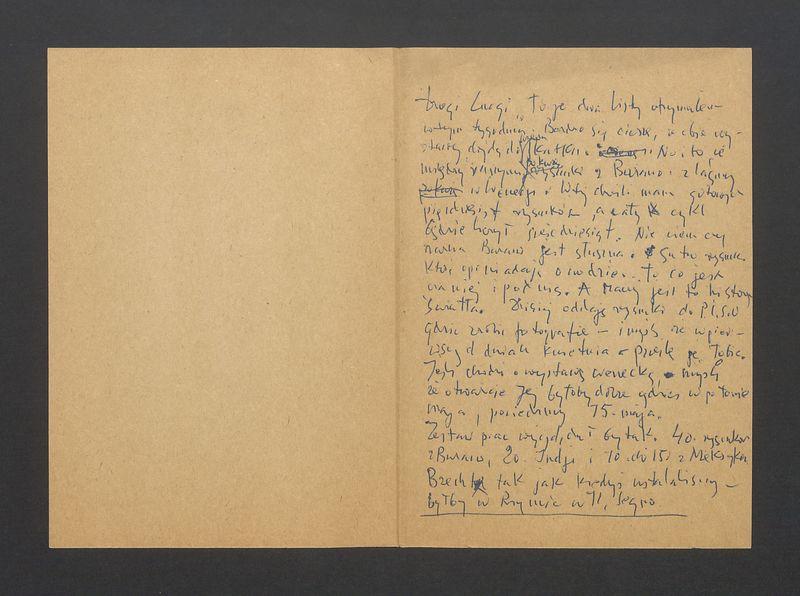 Drogi Luigi, Twoje dwa listy otrzymałem
w tym tygodniu. Bardzo się cieszę, że obie wy-
stawy dojdą do skutku. No i to, że
między rysunki z Burano i z laguny
w Wenecji i tej chwili mam gotowych
pięćdziesiąt rysunków, a cały cykl
będzie liczył sześćdziesiąt. Nie wiem czy
nazwa Burano jest słuszna. Są to rysunki
które opowiadają o wodzie. To co jest
na niej i pod nią. A raczej jest to historia
światła. Dzisiaj oddaję rysunki do
gdzie zrobi fotografie – i myślę, że w pierw-
szych dniach kwietnia prześlę je Tobie.
Jeśli chodzi o wystawę wenecką, myślę
że otwarcie jej byłoby dobrze gdzieś w połowie
maja, powiedzmy 15. maja.
Zestaw prac wyglądałby tak. 40. rysunków
z Burano, 20. Indii i 10 do 15. z Meksyku
Brechta tak jak kiedyś ustalaliśmy –
byłby w Rzymie w Il Segno